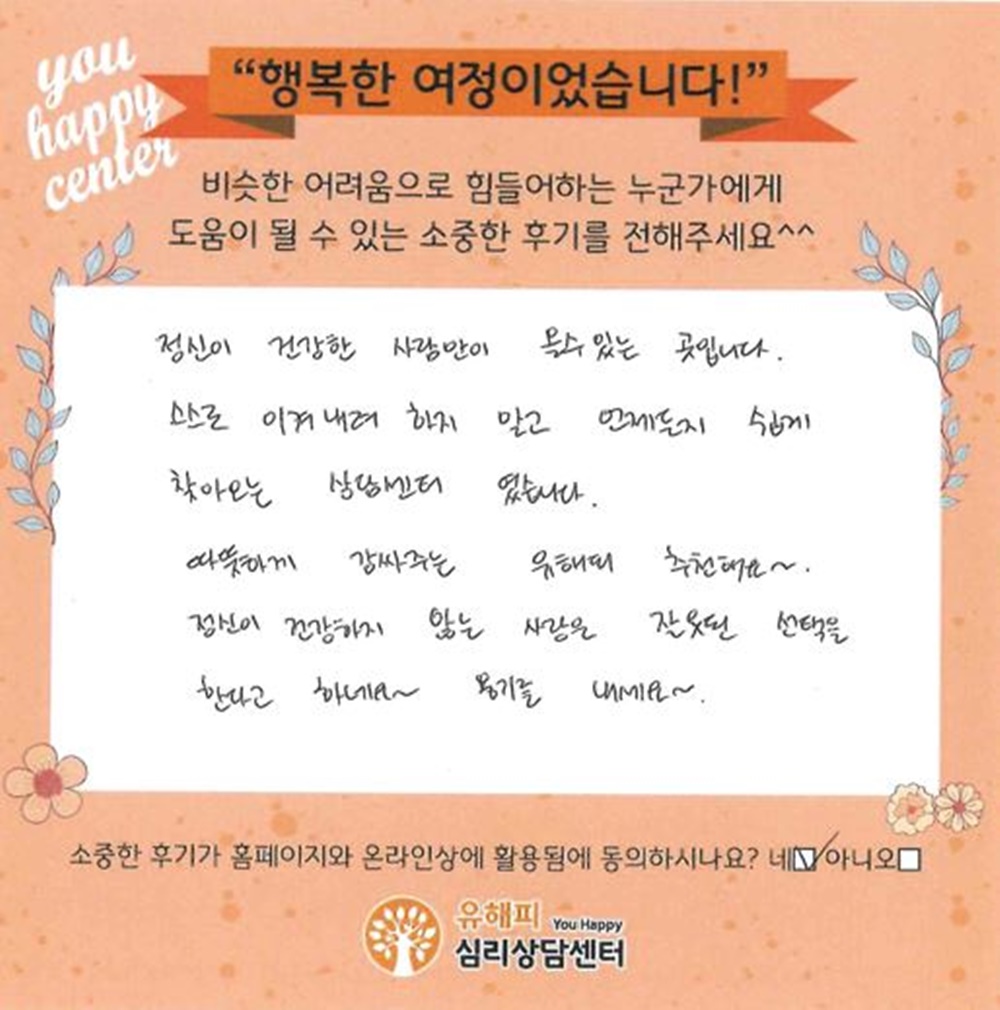 you
happy
center
“행복한 여정이었습니다!”
비슷한 어려움으로 힘들어하는 누군가에게
도움이 될 수 있는 소중한 후기를 전해주세요^^
정신이 건강한 사람만이 올수있는 곳입니다.
스스로 이겨내려 하지 말고 언제든지 쉽게
찾아오는 상담센터 였습니다.
따뜻하게 감싸주는 유해피 추천해요~.
정신이 건강하지 않는 사람은 잘못된 선택을
한다고 하네요~ 용기를 내세요~.
소중한 후기가 홈페이지와 온라인상에 활용됨에 동의하시나요? 네☑아니오☐
유해피 You Happy
심리상담센터